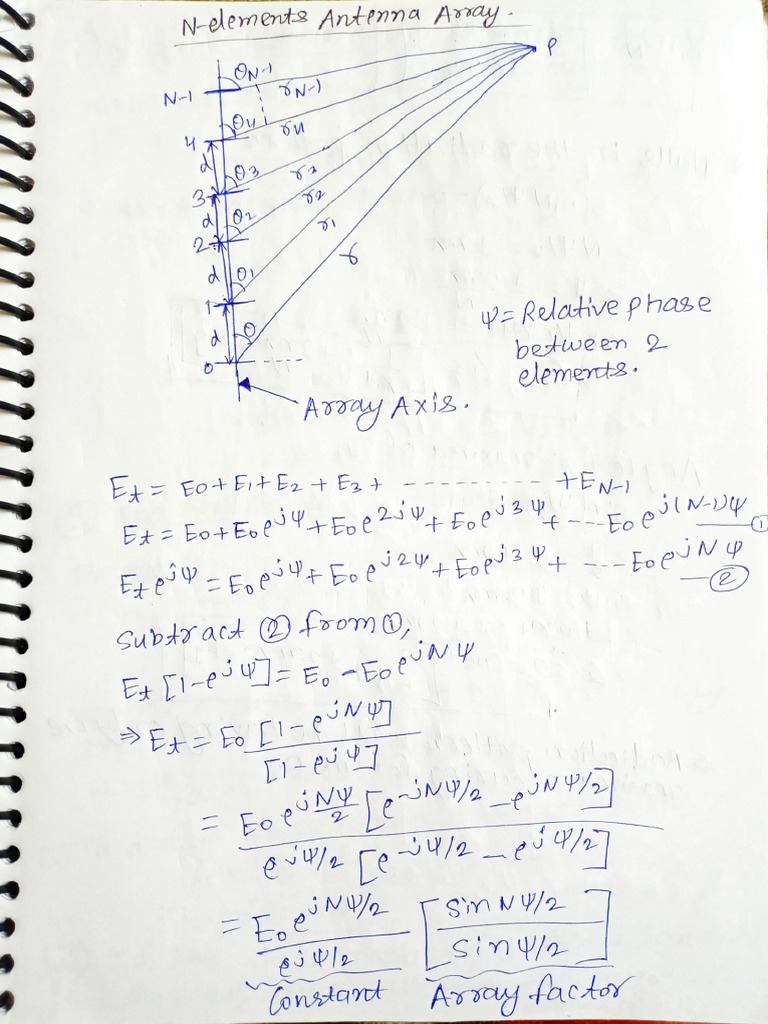 N-elements Antenna Array.
P
N-1 θN-1 rN-1
4 θ4 r4
d
3 θ3 r3
d r2
2 θ2
d r1
1 θ1 r
d θ
0
Array Axis.
Ψ = Relative phase
between 2
elements.
Et = E0 + E1 + E2 + E3 + ---------- + EN-1
Et = E0 + E0 e^jΨ + E0 e^2jΨ + E0 e^j3Ψ + --- E0 e^j(N-1)Ψ —①
Et e^jΨ = E0 e^jΨ + E0 e^j2Ψ + E0 e^j3Ψ + --- E0 e^jNΨ —②
Subtract ② from ①,
Et [1 - e^jΨ] = E0 - E0 e^jNΨ
⇒ Et = E0 [1 - e^jNΨ] / [1 - e^jΨ]
= E0 e^jNΨ/2 [e^-jNΨ/2 - e^jNΨ/2] / e^jΨ/2 [e^-jΨ/2 - e^jΨ/2]
= E0 e^jNΨ/2 / e^jΨ/2 [Sin NΨ/2 / Sin Ψ/2]
Constant Array factor